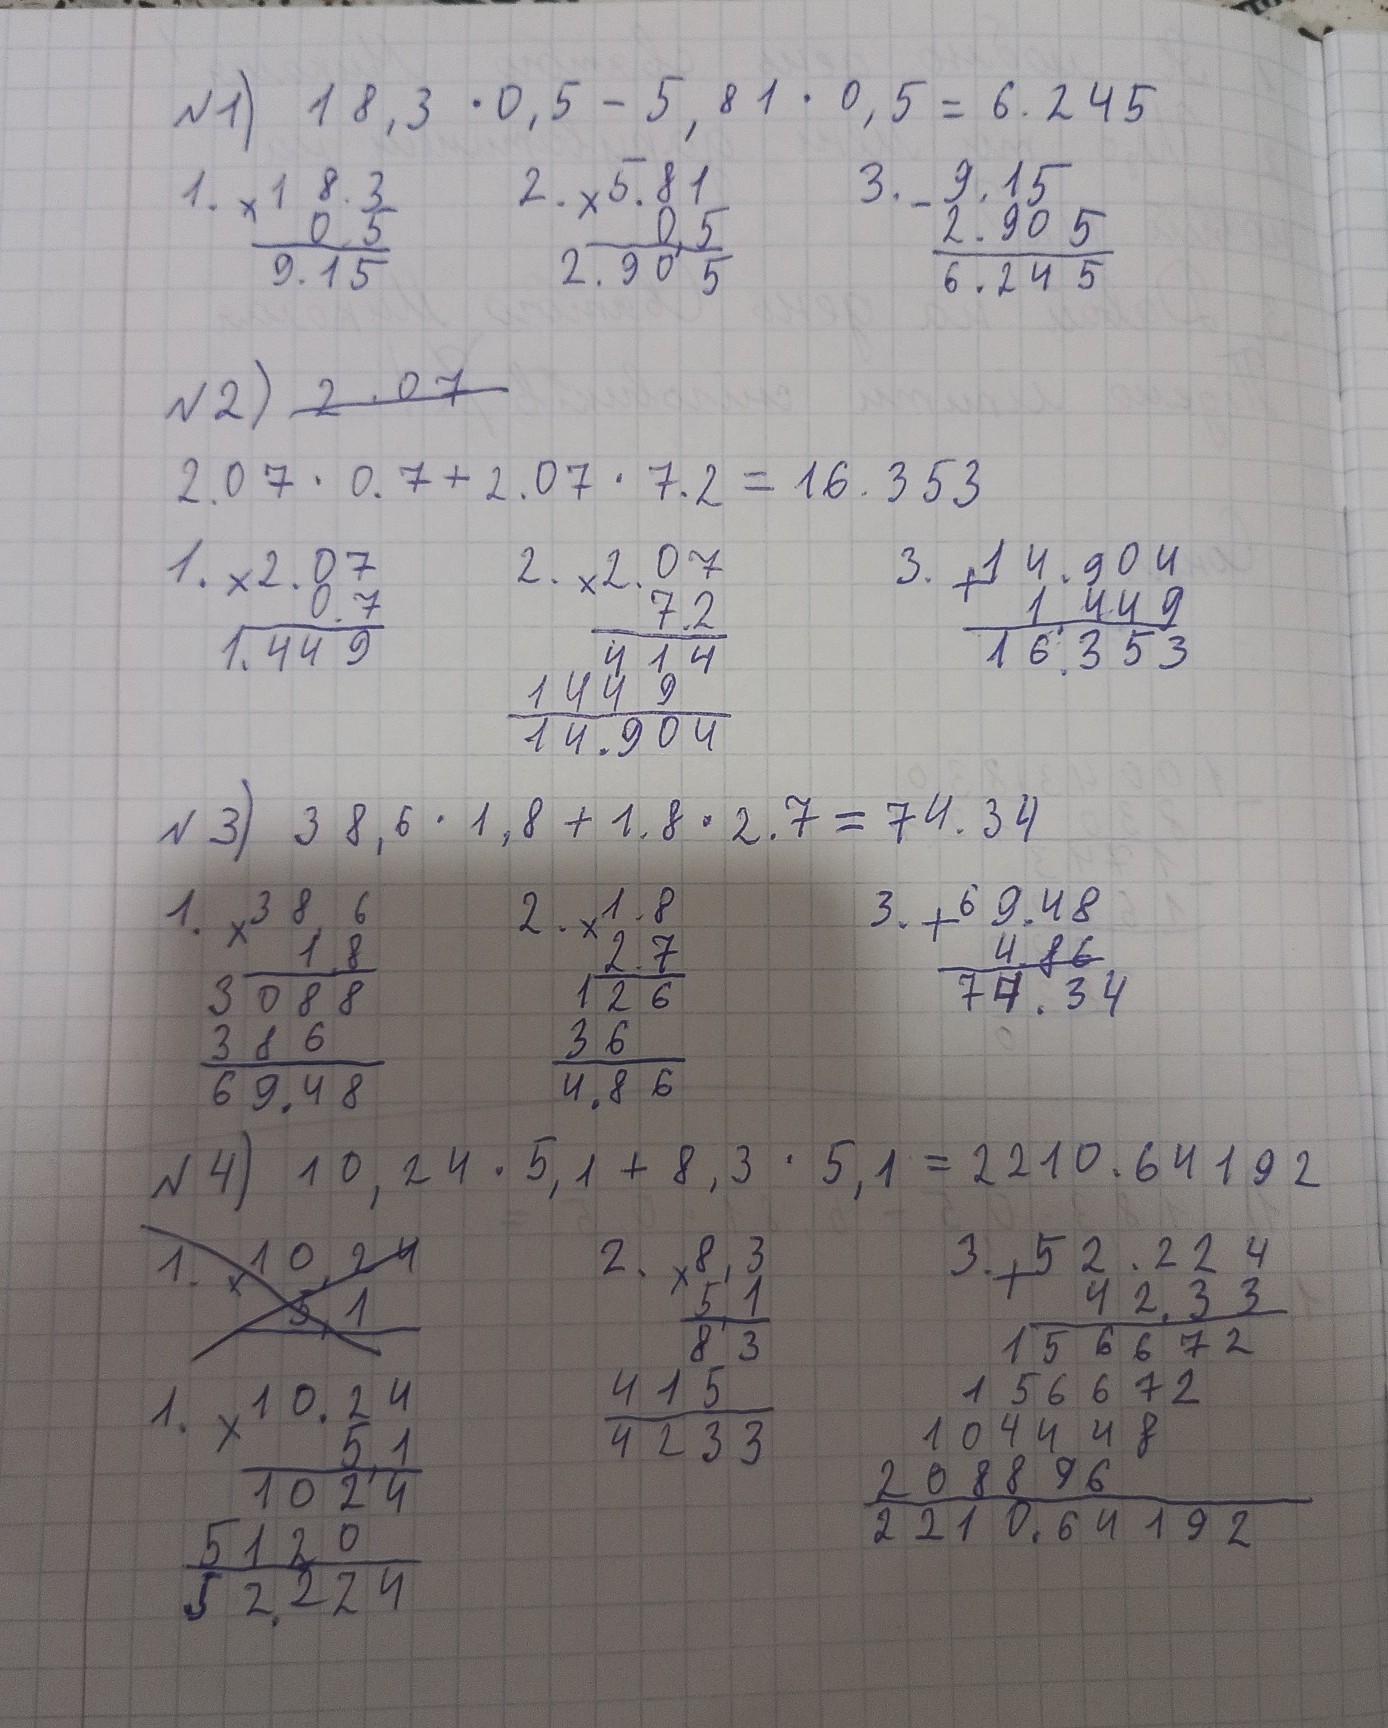 №1) 18,3 · 0,5 - 5,81 · 0,5 = 6.245
1. × 18.3 2. × 5.81 3. - 9.15
0.5 0,5 2.905
9.15 2.905 6.245
№2) 2.07
2.07 · 0.7 + 2.07 · 7.2 = 16.353
1. × 2.07 2. × 2.07 3. + 14.904
0.7 7.2 1.449
1.449 414 16.353
1449
14.904
№3) 38,6 · 1,8 + 1.8 · 2.7 = 74.34
1. × 38,6 2. × 1.8 3. + 69.48
1.8 2.7 4.86
3088 126 74.34
386 36
69.48 4.86
№4) 10,24 · 5,1 + 8,3 · 5,1 = 2210.64192
1. × 10,24 2. × 8,3 3. + 52.224
5,1 5,1 42.33
83 156672
1. × 10.24 415 156672
5,1 4233 104448
1024 208896
5120 2210.64192
52.224